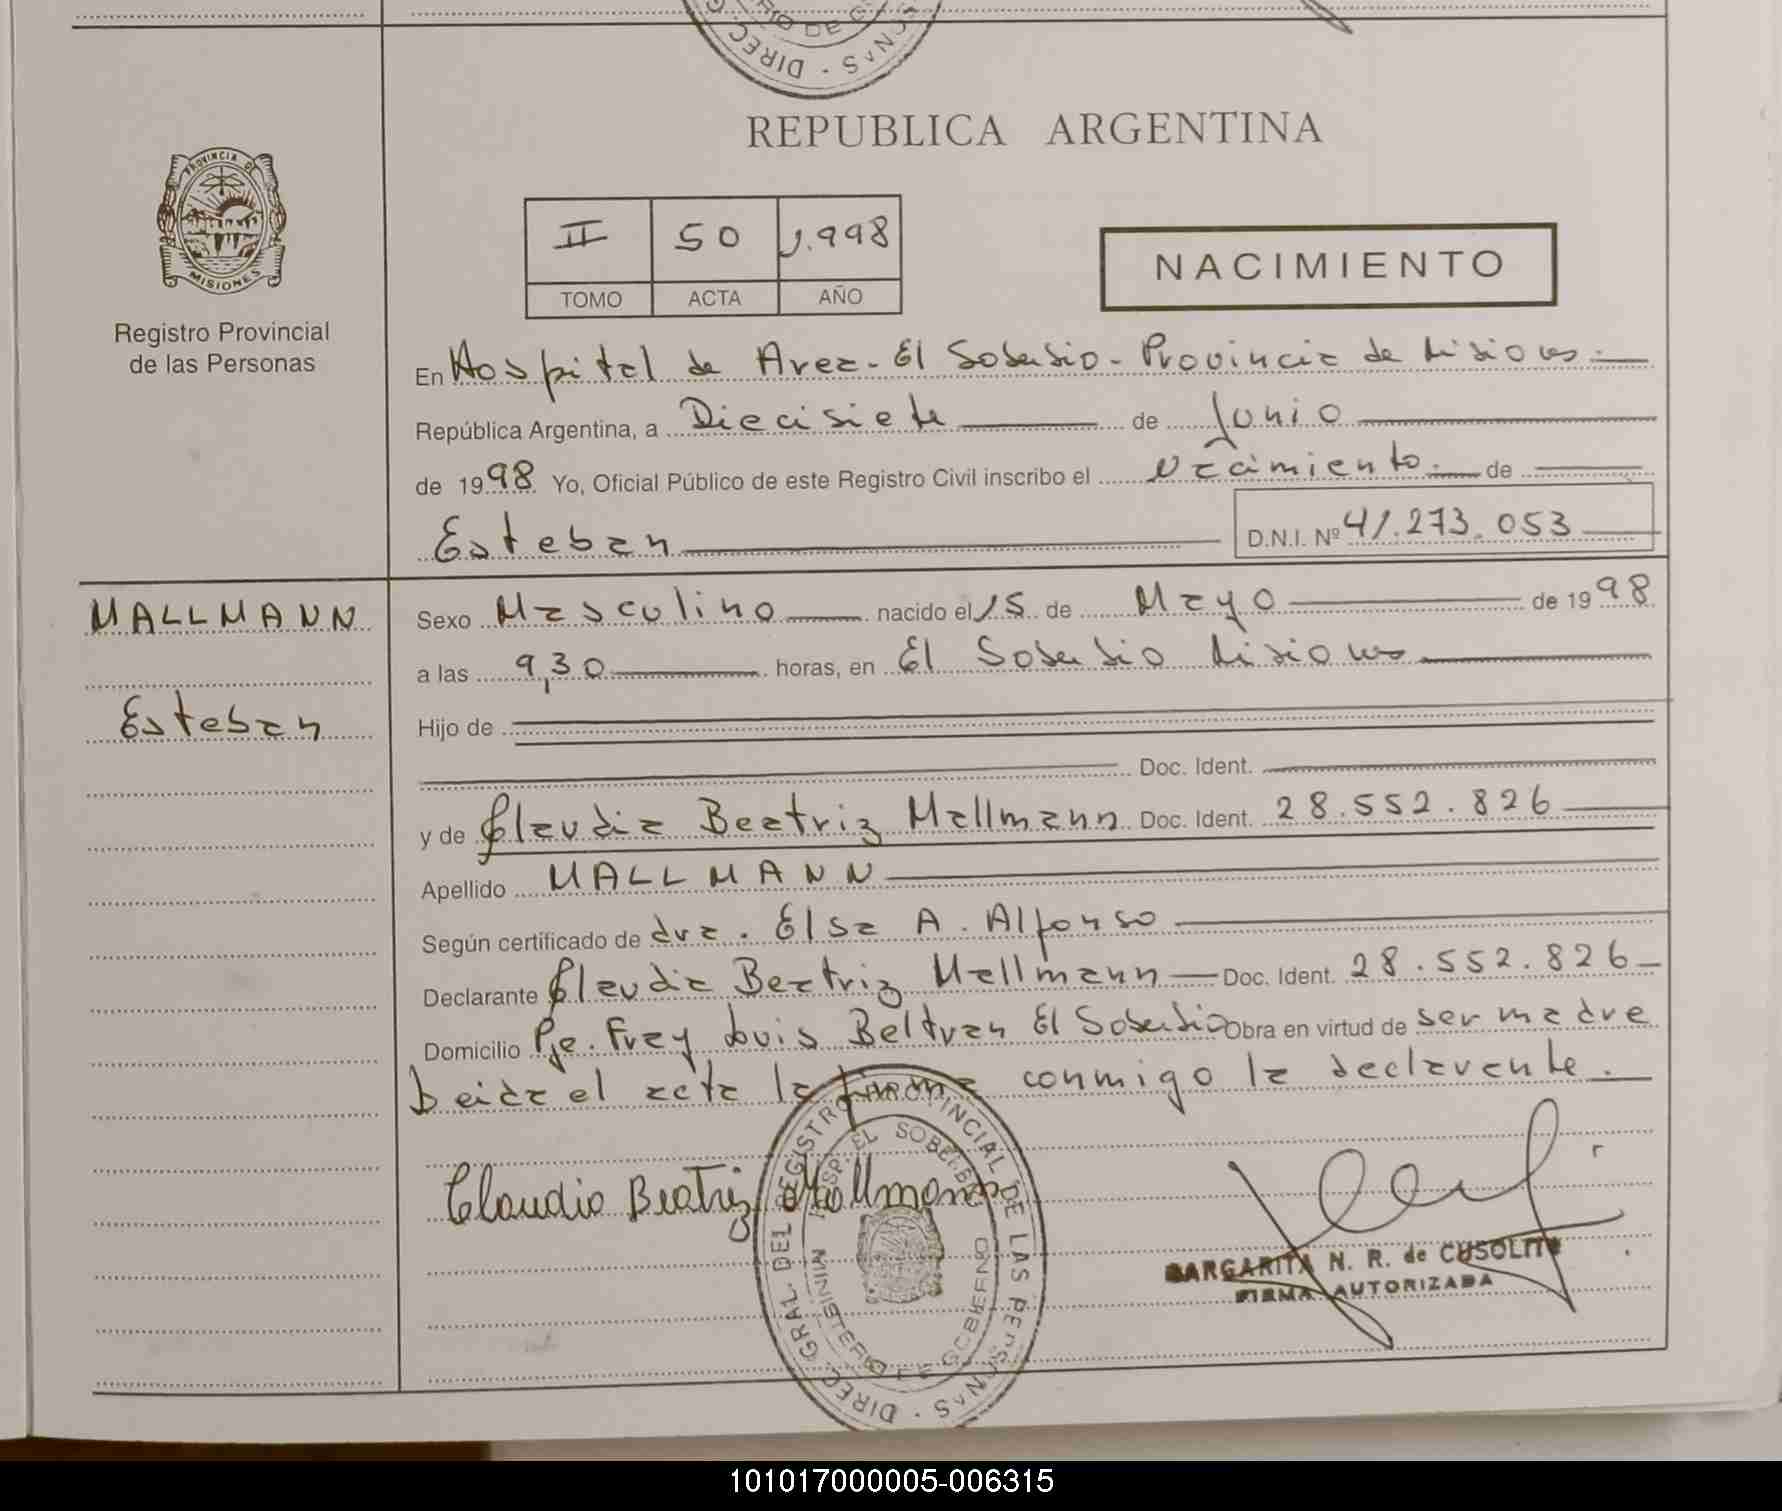 DIREC
REPUBLICA ARGENTINA
PROVINCIA DE
MISIONES
Registro Provincial
de las Personas
II 50 1.998
TOMO ACTA AÑO
NACIMIENTO
En Hospital de Area - El Soberbio - Provincia de Misiones.
República Argentina, a Diecisiete de Junio
de 1998 Yo, Oficial Público de este Registro Civil inscribo el nacimiento. de
Esteban D.N.I. Nº 41.273.053
MALLMANN
Esteban
Sexo Masculino nacido el 15 de Mayo de 1998
a las 9,30 horas, en El Soberbio Misiones
Hijo de
Doc. Ident.
y de Claudia Beatriz Mallmann Doc. Ident. 28.552.826
Apellido MALLMANN
Según certificado de dra. Elsa A. Alfonso
Declarante Claudia Beatriz Mallmann Doc. Ident. 28.552.826
Domicilio Pje. Fray Luis Beltran El Soberbio Obra en virtud de ser madre
Leida el acta la firma conmigo la declarante.
Claudia Beatriz Mallmann
DIREC. GRAL. DEL REGISTRO PROVINCIAL DE LAS
HSP. EL SOBERBIO
MINISTERIO DE GOBIERNO
MARGARITA N. R. de CUSOLITO
FIRMA AUTORIZADA
101017000005-006315